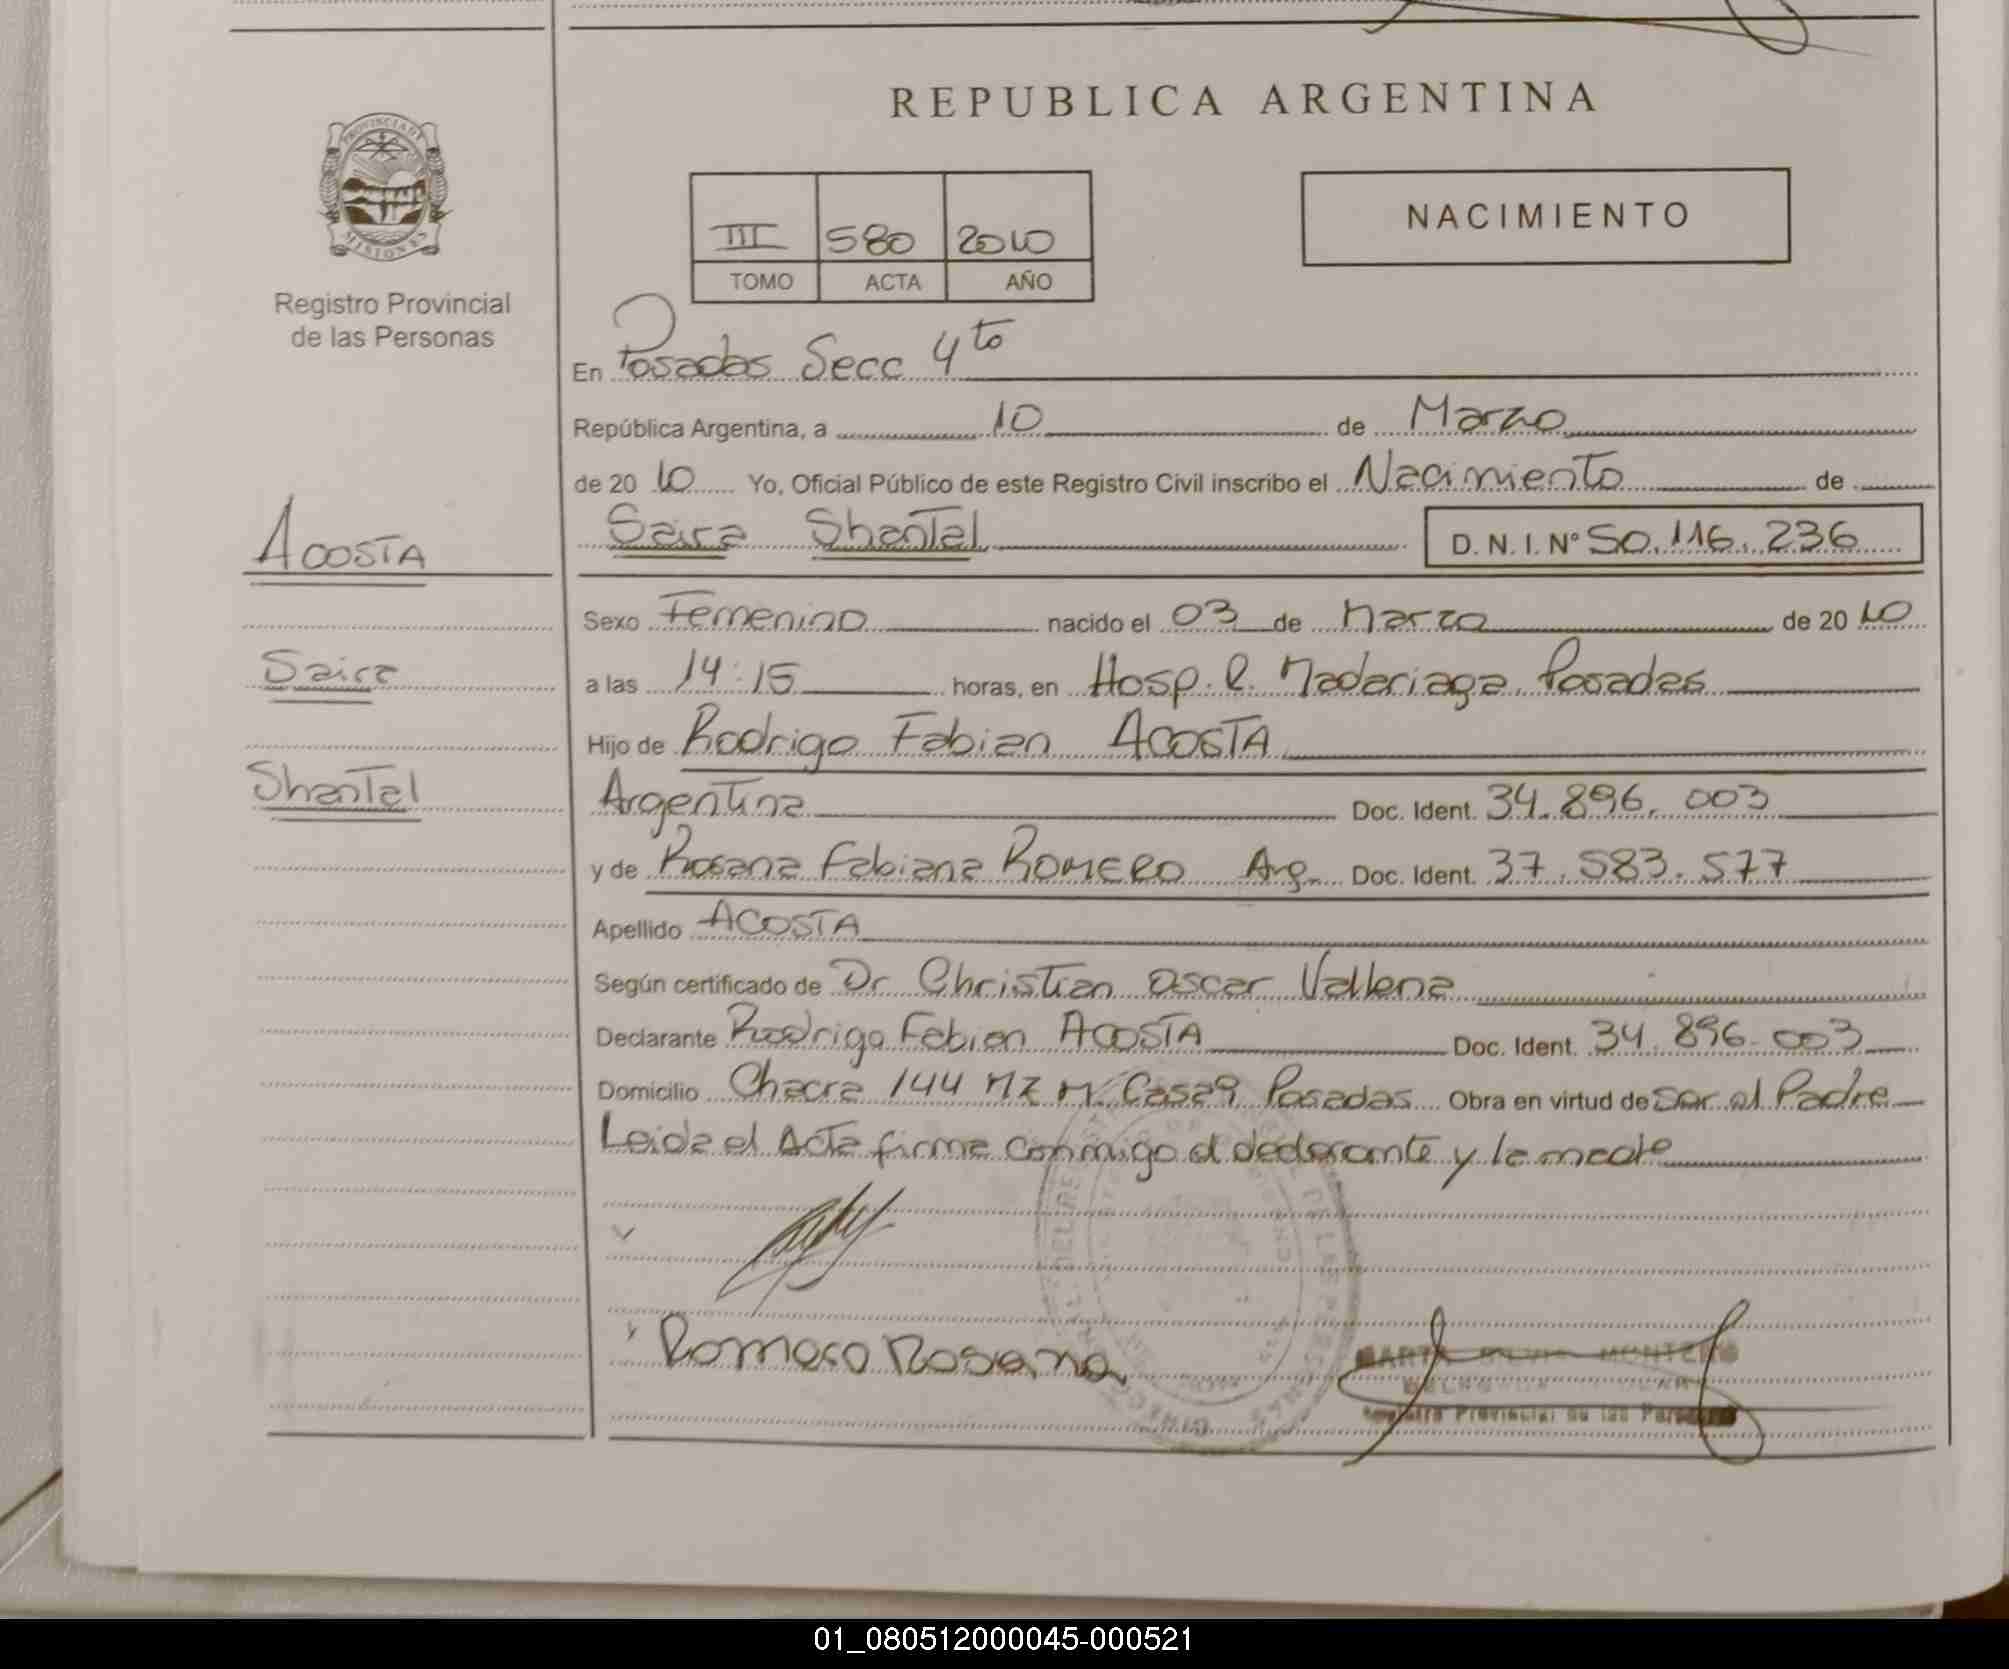 REPUBLICA ARGENTINA
PROVINCIA DE
MISIONES
Registro Provincial
de las Personas
NACIMIENTO
III 580 2010
TOMO ACTA AÑO
En Posadas Secc 4to
República Argentina, a 10 de Marzo
de 2010 Yo, Oficial Público de este Registro Civil inscribo el Nacimiento de
Saira Shantal D. N. I. N° 50.116.236
ACOSTA
Saira
Shantal
Sexo Femenino nacido el 03 de Marzo de 2010
a las 14:15 horas, en Hosp. R. Madariaga Posadas
Hijo de Rodrigo Fabian ACOSTA
Argentina Doc. Ident. 34.896.003
y de Rosana Fabiana ROMERO Arg. Doc. Ident. 37.583.577
Apellido ACOSTA
Según certificado de Dr Christian Oscar Vallena
Declarante Rodrigo Fabian ACOSTA Doc. Ident. 34.896.003
Domicilio Chacra 144 MZ M Casa 9 Posadas Obra en virtud de ser el Padre
Leida el Acta firma conmigo el declarante y la madre
Romero Rosana
MARTA SILVIA MONTERO
Registro Provincial de las Personas
01_080512000045-000521